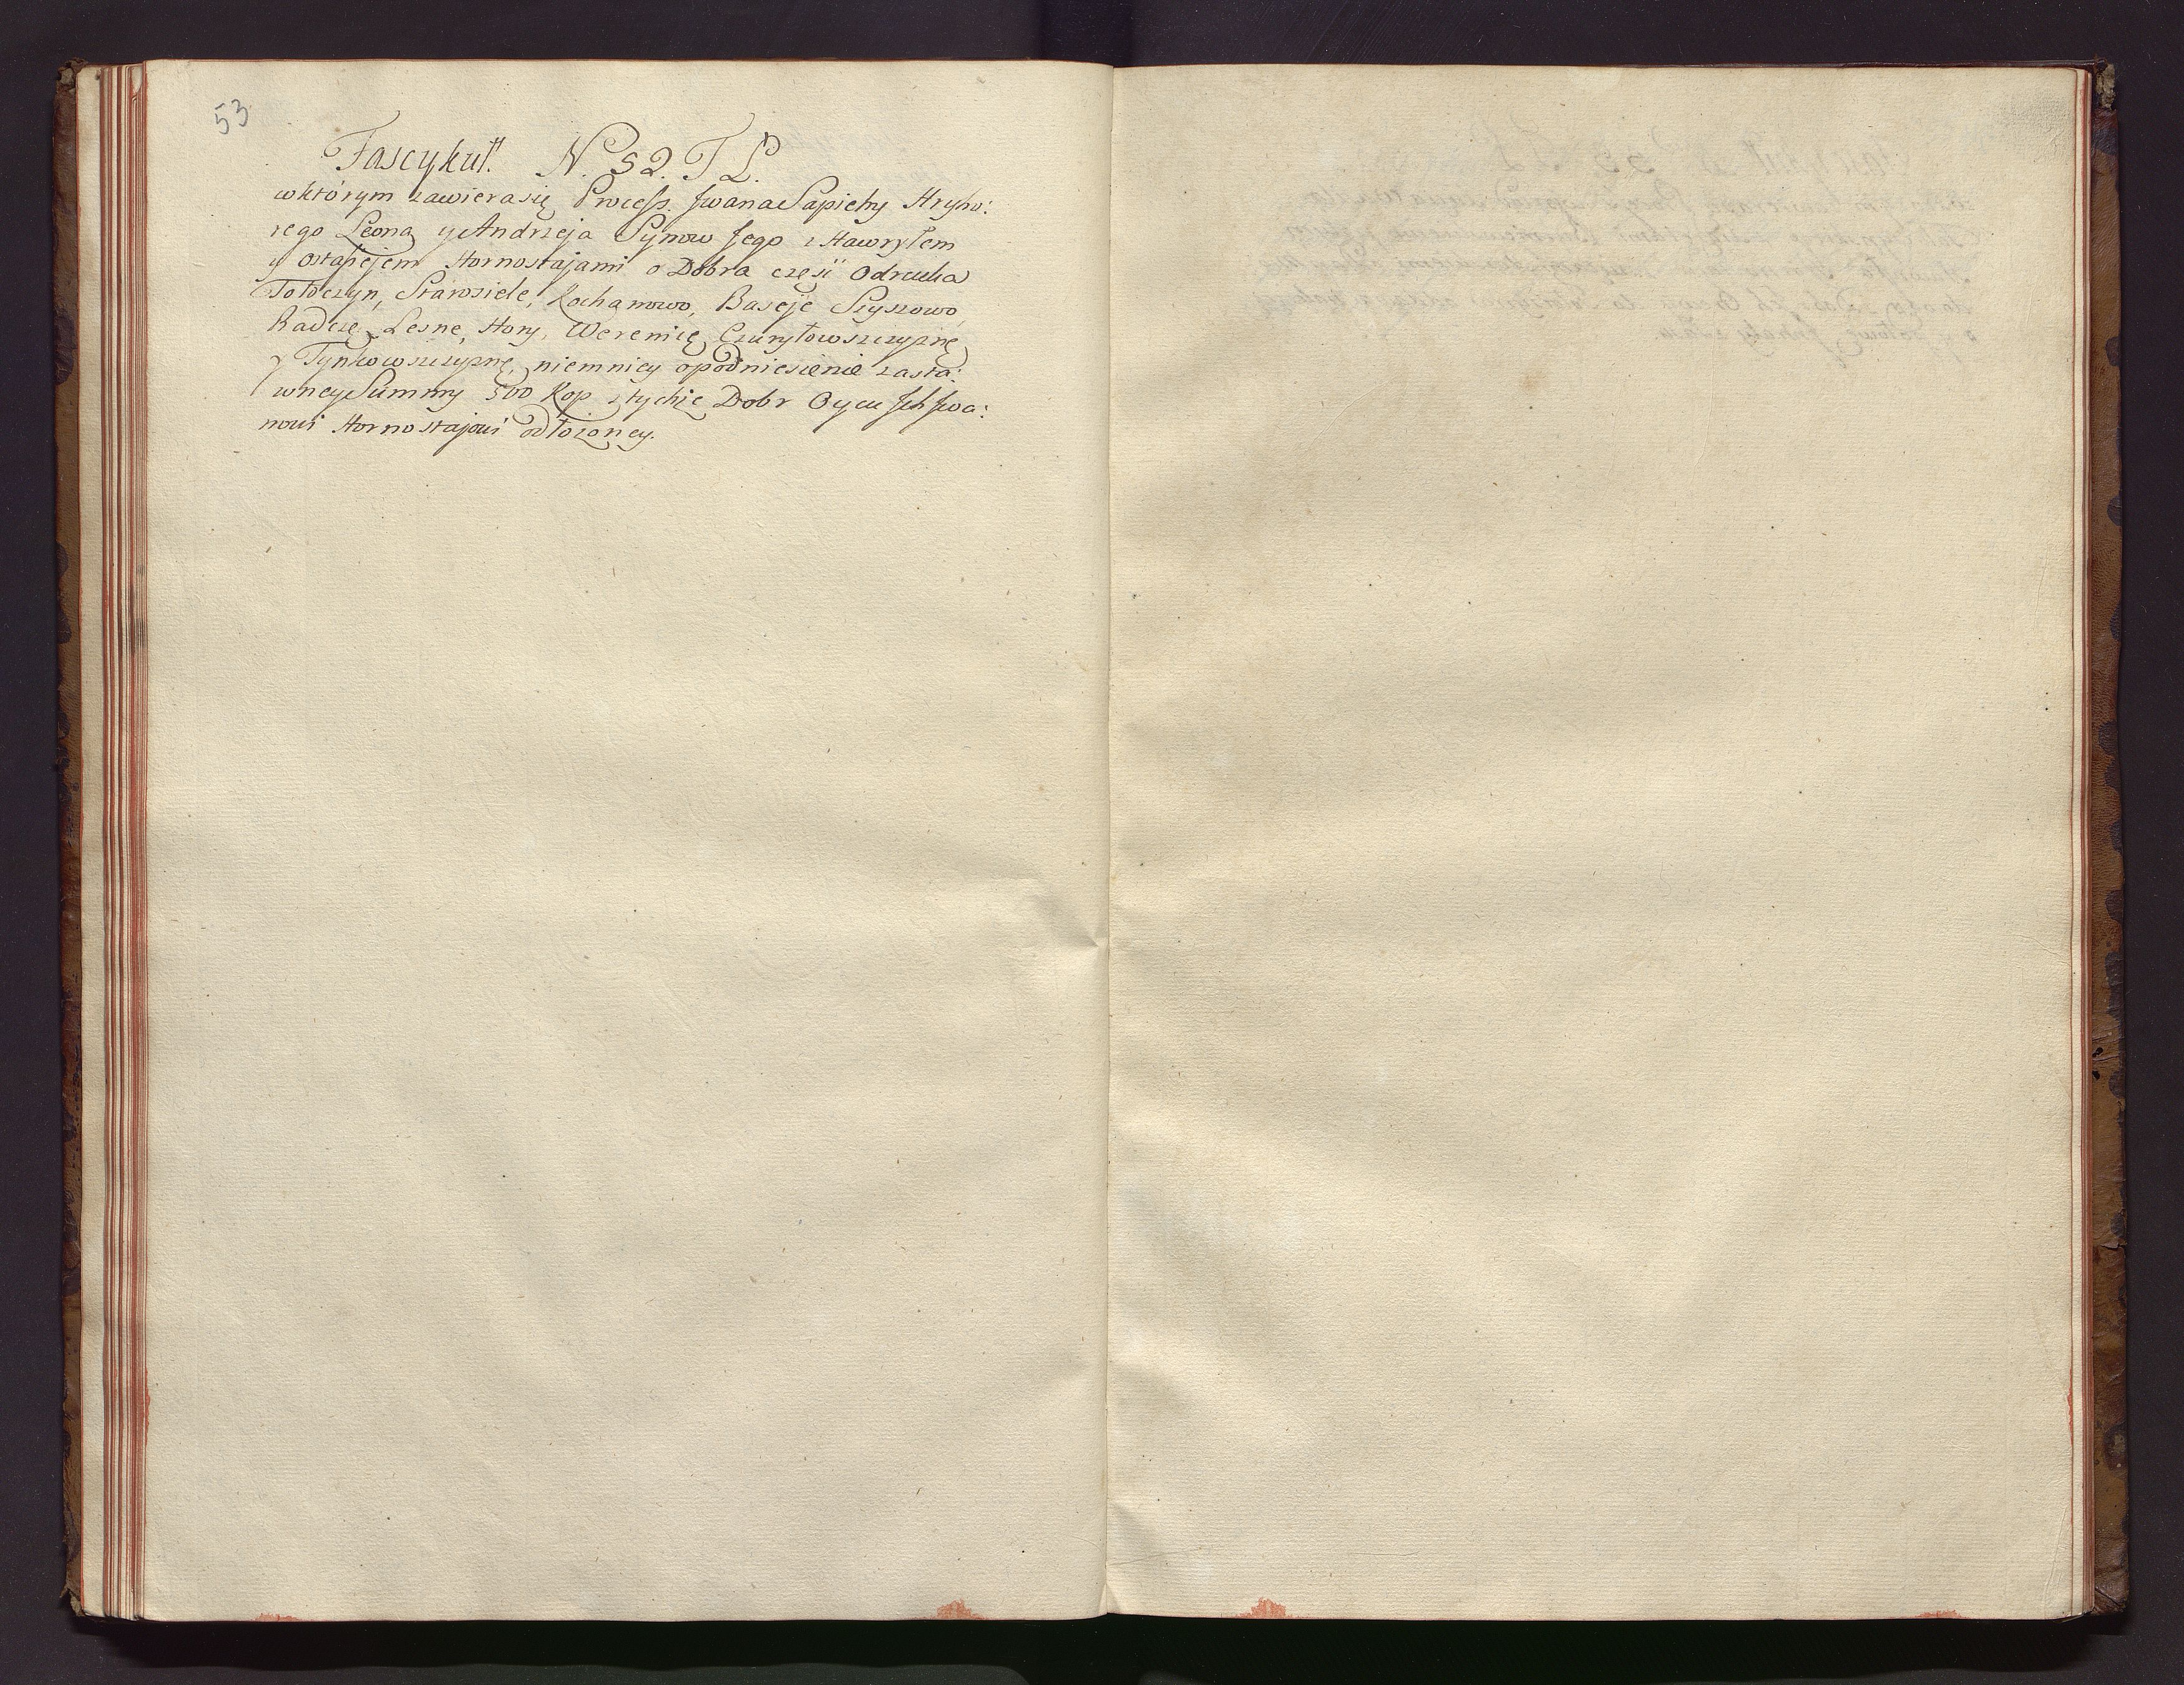 53
Fascykuł. N. 52. T L.
w którym zawiera się Process Jwana Sapiehy Hryho:
rego Leona y Andrzeja Synow Jego z Hawryłem
y Ostafejem Hornostajami o Dobra częsi Odrucka
Tołoczyn, Starosiele, Kochanowo, Baseje Szyszowo,
Radczę Lesne, Hory, Weremię Czuryłowszczyznę
y Tynkowszczyznę, niemniey o podniesienie zasta:
wney Summy 500 Kop z tychże Dobr Oycu Jch Jwa:
nowi Hornostajowi odłożoney.